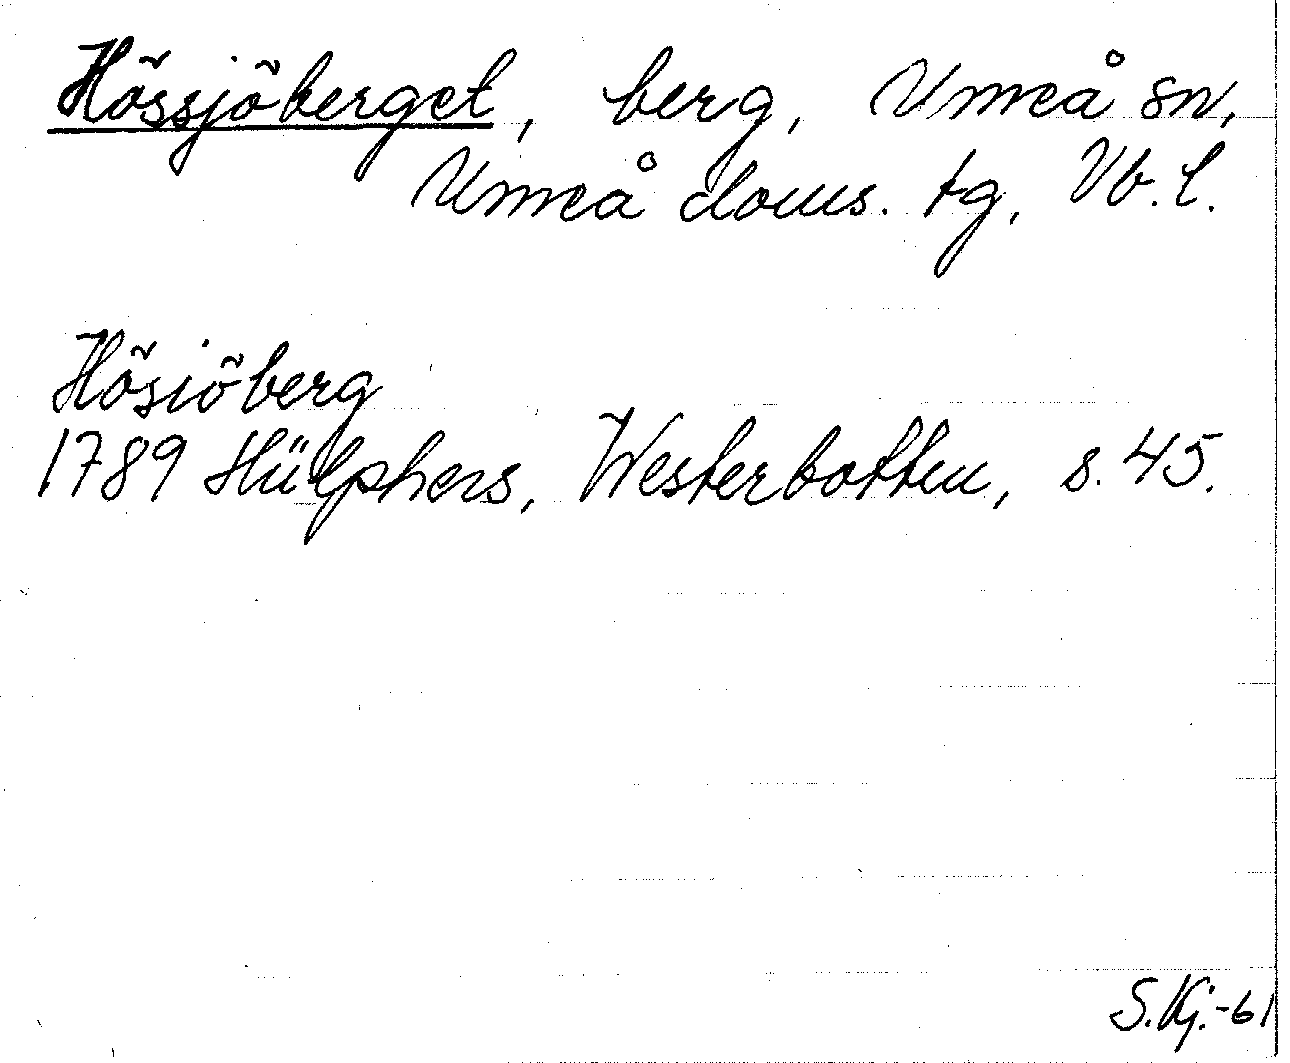 Hössjöberget, berg, Umeå sn,
Umeå doms. tg, Vb. l.
Hösiöberg
1789 Hülphers, Westerbotten, s. 45.
S.Kj.-61